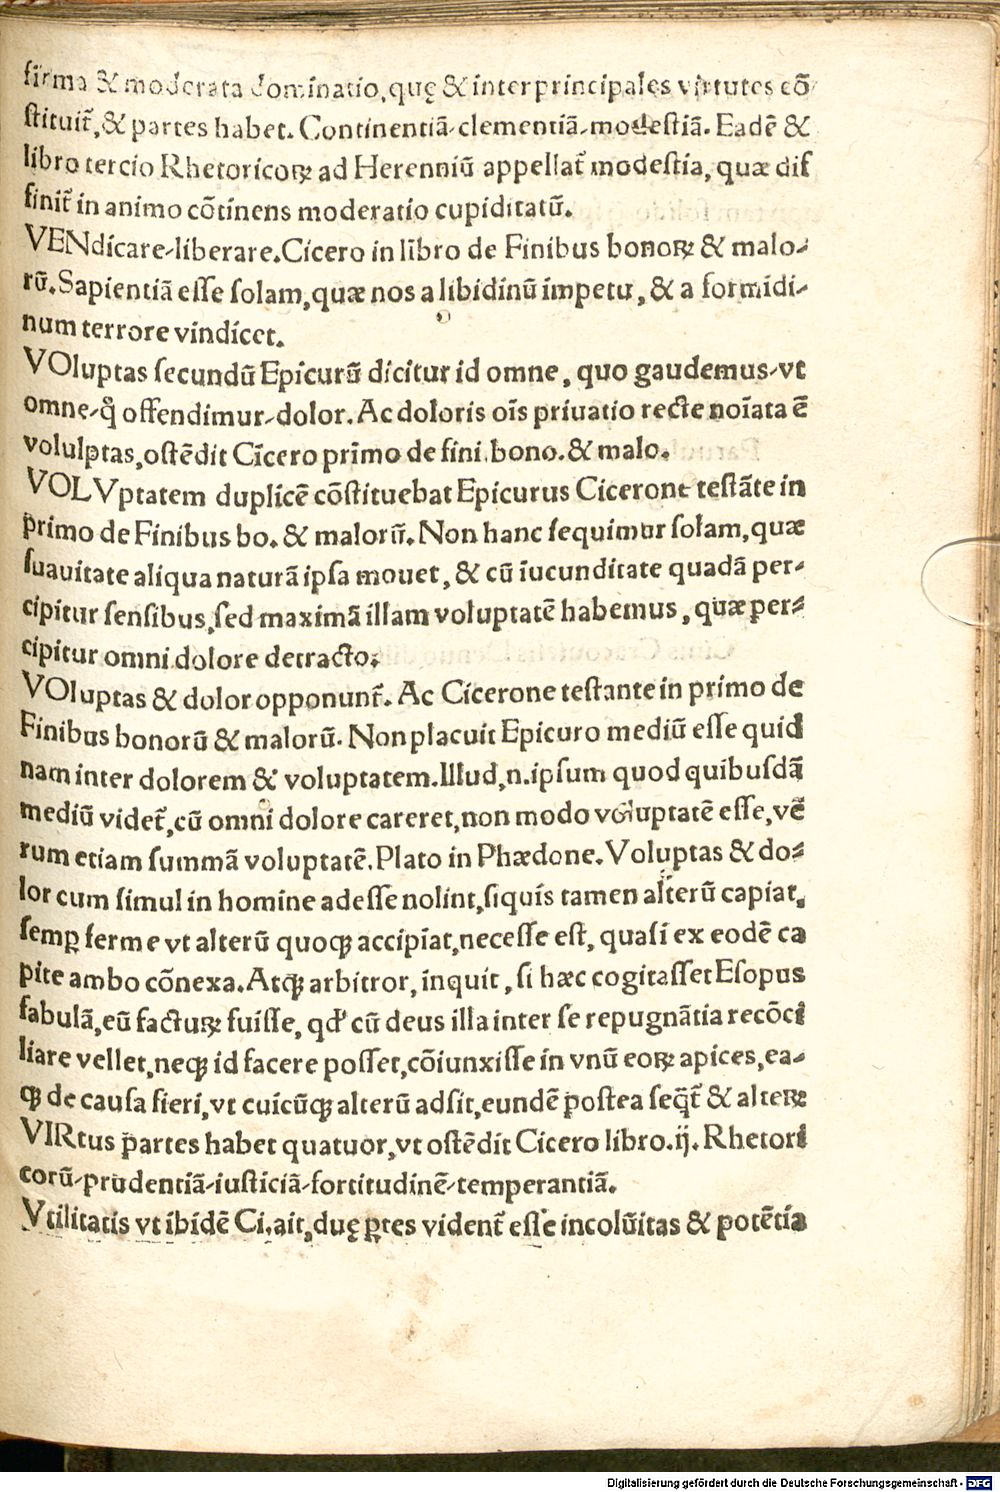 firma & moderata dominatio, quę & inter principales virtutes cõ
stituit᷑,& partes habet. Continentiã⸗clementiã⸗modestiã. Eadẽ &
libro tercio Rhetoricoꝝ ad Herenniũ appellat᷑ modestia, quæ dif
finit᷑ in animo cõtinens moderatio cupiditatũ.
VENdicare⸗liberare.Cicero in libro de Finibus bonoꝝ & malo⸗
rũ.Sapientiã esse solam,quæ nos a libidinũ impetu, & a formidi⸗
num terrore vindicet.
VOluptas secundũ Epicurũ dicitur id omne, quo gaudemus⸗vt
omne⸗q̊ offendimur⸗dolor. Ac doloris oĩs priuatio recte noĩata ẽ
volulptas,ostẽdit Cicero primo de fini.bono.& malo.
VOLVptatem duplicẽ cõstituebat Epicurus Cicerone testãte in
primo de Finibus bo. & malorũ. Non hanc sequimur solam,quæ
suauitate aliqua naturã ipsa mouet, & cũ iucunditate quadã per⸗
cipitur sensibus,sed maximã illam voluptatẽ habemus, quæ per⸗
cipitur omni dolore detracto.
VOluptas & dolor opponunt᷑. Ac Cicerone testante in primo de
Finibus bonorũ & malorũ. Non placuit Epicuro mediũ esse quid
nam inter dolorem & voluptatem.Illud,n.ipsum quod quibusdã
mediũ videt᷑,cũ omni dolore careret,non modo voluptatẽ esse,vẽ
rum etiam summã voluptatẽ.Plato in Phædone.Voluptas & do⸗
lor cum simul in homine adesse nolint,siquis tamen alterũ capiat,
semꝑ ferme vt alterũ quoqꝫ accipiat,necesse est, quasi ex eodẽ ca
pite ambo cõnexa.Atqꝫ arbitror, inquit, si hæc cogitasset Esopus
fabulã,eũ facturꝝ fuisse, qd' cũ deus illa inter se repugnãtia recõci
liare vellet,neqꝫ id facere posset,cõiunxisse in vnũ eoꝝ apices,ea⸗
qꝫ de causa fieri,vt cuicũqꝫ alterũ adsit,eundẽ postea seq̃t᷑ & alteꝝ
VIRtus partes habet quatuor,vt ostẽdit Cicero libro.ij. Rhetori
corũ⸗prudentiã⸗iusticiã⸗fortitudinẽ⸗temperantiã.
Vtilitatis vt ibidẽ Ci.ait,duę ꝑtes vident᷑ esse incolũitas & potẽtia
Digitalisierung gefördert durch die Deutsche Forschungsgemeinschaft - DFG